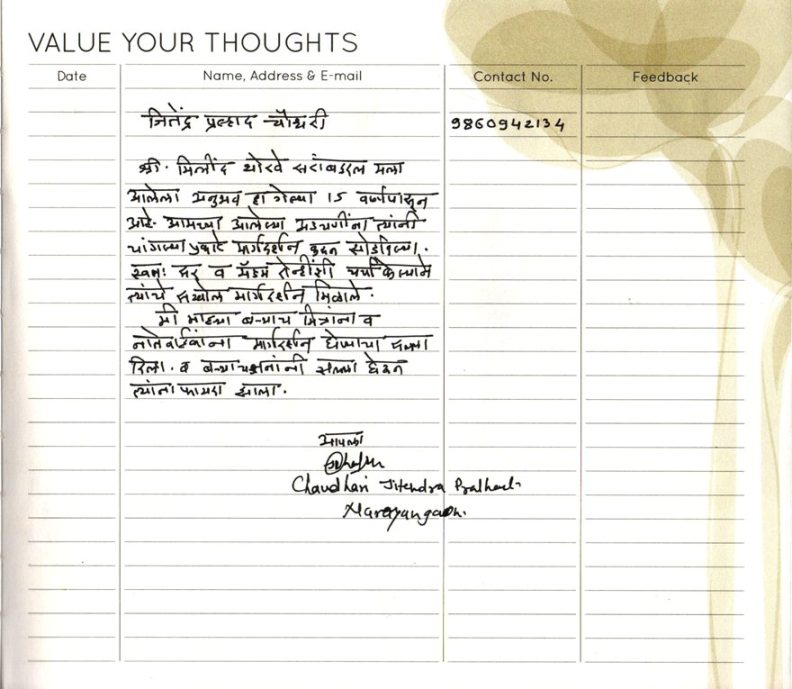 VALUE YOUR THOUGHTS
Date Name, Address & E-mail Contact No. Feedback
जितेंद्र प्रल्हाद चौधरी 9860942134
श्री. मिलींद थोरवे सरांबद्दल मला
आलेला अनुभव हा गेल्या 15 वर्षापासून
आहे. आमच्या आलेल्या अडचणींना त्यांनी
चांगल्या प्रकारे मार्गदर्शन करून सोडविल्या.
स्वतः सर व मॅडम दोन्हींशी चर्चा केल्याने
त्यांचे सखोल मार्गदर्शन मिळाले.
मी माझ्या बऱ्याच मित्रांना व
नातेवाईकांना मार्गदर्शन घेण्याचा सल्ला
दिला. व बऱ्याचजनांनी सल्ला घेऊन
त्यांना फायदा झाला.
आपला
Chaudhari Jitendra Pralhad.
Narayangaon.